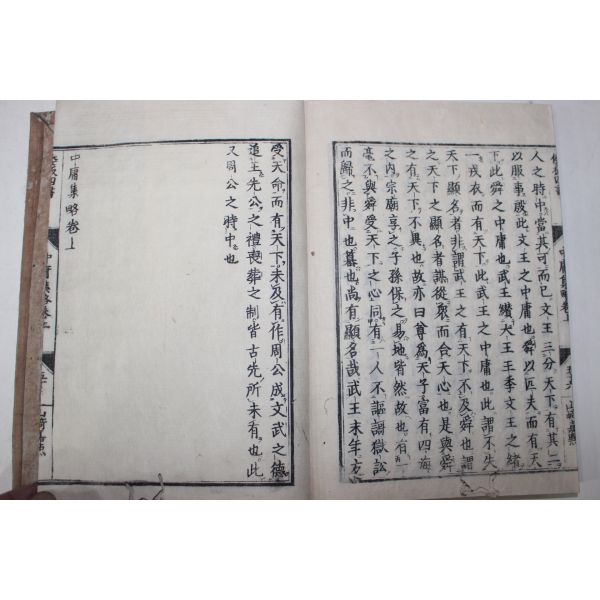 人之時中當其可而已文王三分天下有其二
以服事殷此文王之中庸也舜以匹夫而有天
下此舜之中庸也武王纘大王王季文王之緒
一戎衣而有天下此武王之中庸也此謂不失
天下顯名者非謂武王之有天下不及舜也謂
之天下之顯名者謀從衆而合天心也是與舜
之有天下不異也故亦曰尊為天子富有四海
之內宗廟享之子孫保之易地皆然故也有一
毫不與舜受天下之心同有一人不謳謌獄訟
而歸之非中也蓋也尚有顯名哉武王末年方
受天命而有天下未及有作周公成文武之德
追王先公之禮喪葬之制皆古先所未有也此
又周公之時中也
中庸集略卷上